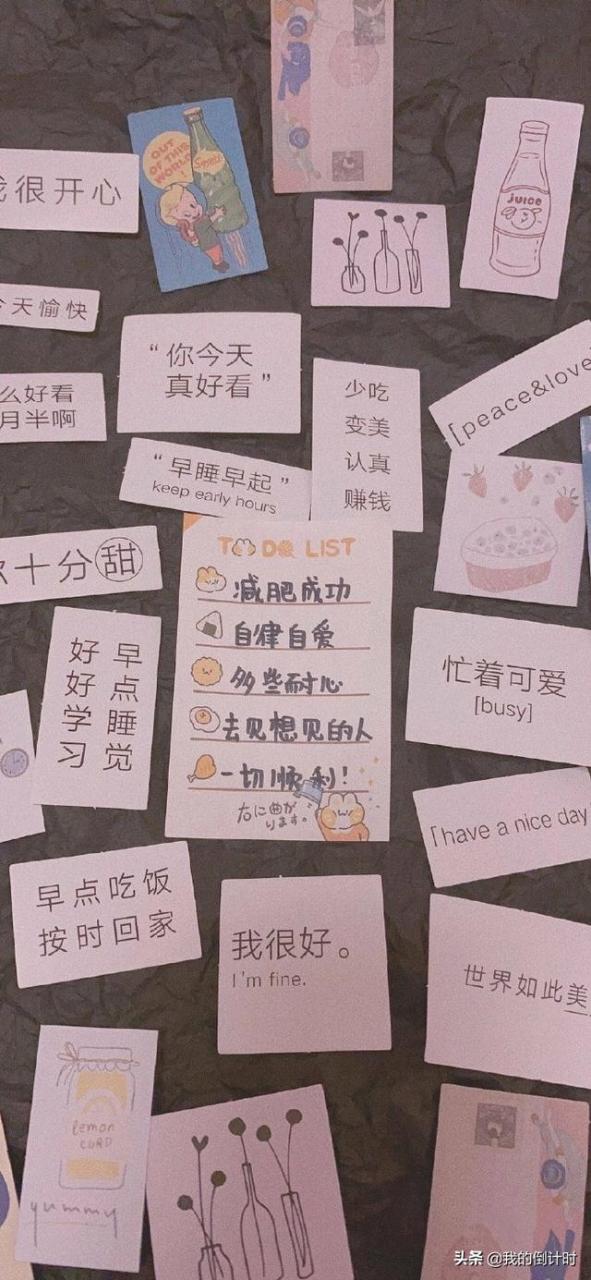 OUT
OF THIS
WORLD
!
我很开心
JUICE
今天愉快
“你今天
真好看”
么好看
月半啊
少吃
变美
认真
赚钱
[peace&love
“早睡早起”
keep early hours
十分甜
TO DO LIST
减肥成功
自律自爱
多些耐心
去见想见的人
一切顺利!
右に曲が
ります。
早点睡觉
好好学习
忙着可爱
[busy]
「have a nice day
早点吃饭
按时回家
我很好。
I'm fine.
世界如此美
lemon
CURD
yummy
头条 @我的倒计时